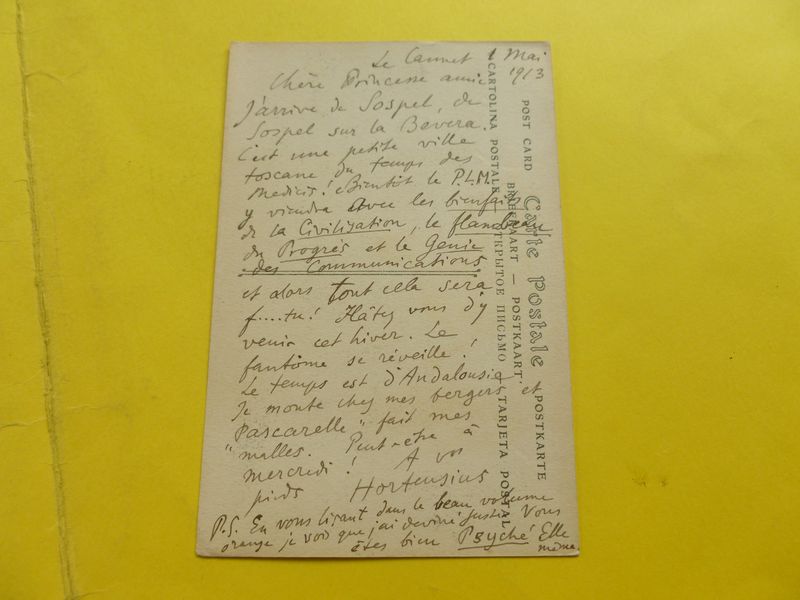 Le Cannet 1 Mai
1913
Chère Princesse amie
J'arrive de Sospel, de
Sospel sur la Bevera.
C'est une petite ville
toscane du temps des
Medicis! Bientôt le P.L.M.
y viendra avec les bienfaits
de la Civilisation, le flambeau
du Progrès et le Génie
des Communications
et alors tout cela sera
f....tu! Hâtez vous d'y
venir cet hiver. Le
fantôme se réveille!
Le temps est d'Andalousie
Je monte chez mes bergers et
Pascarelle "fait mes
"malles. Peut-être à
mercredi! A vos
pieds Hortensius
P.S. En vous lisant dans le beau volume
orange je vois que j'ai deviné juste Vous
êtes bien Psyché Elle
même.
Carte Postale
POST CARD BRIEFKAART — POSTKAART POSTKARTE
CARTOLINA POSTALE — ОТКРЫТОЕ ПИСЬМО — TARJETA POSTAL